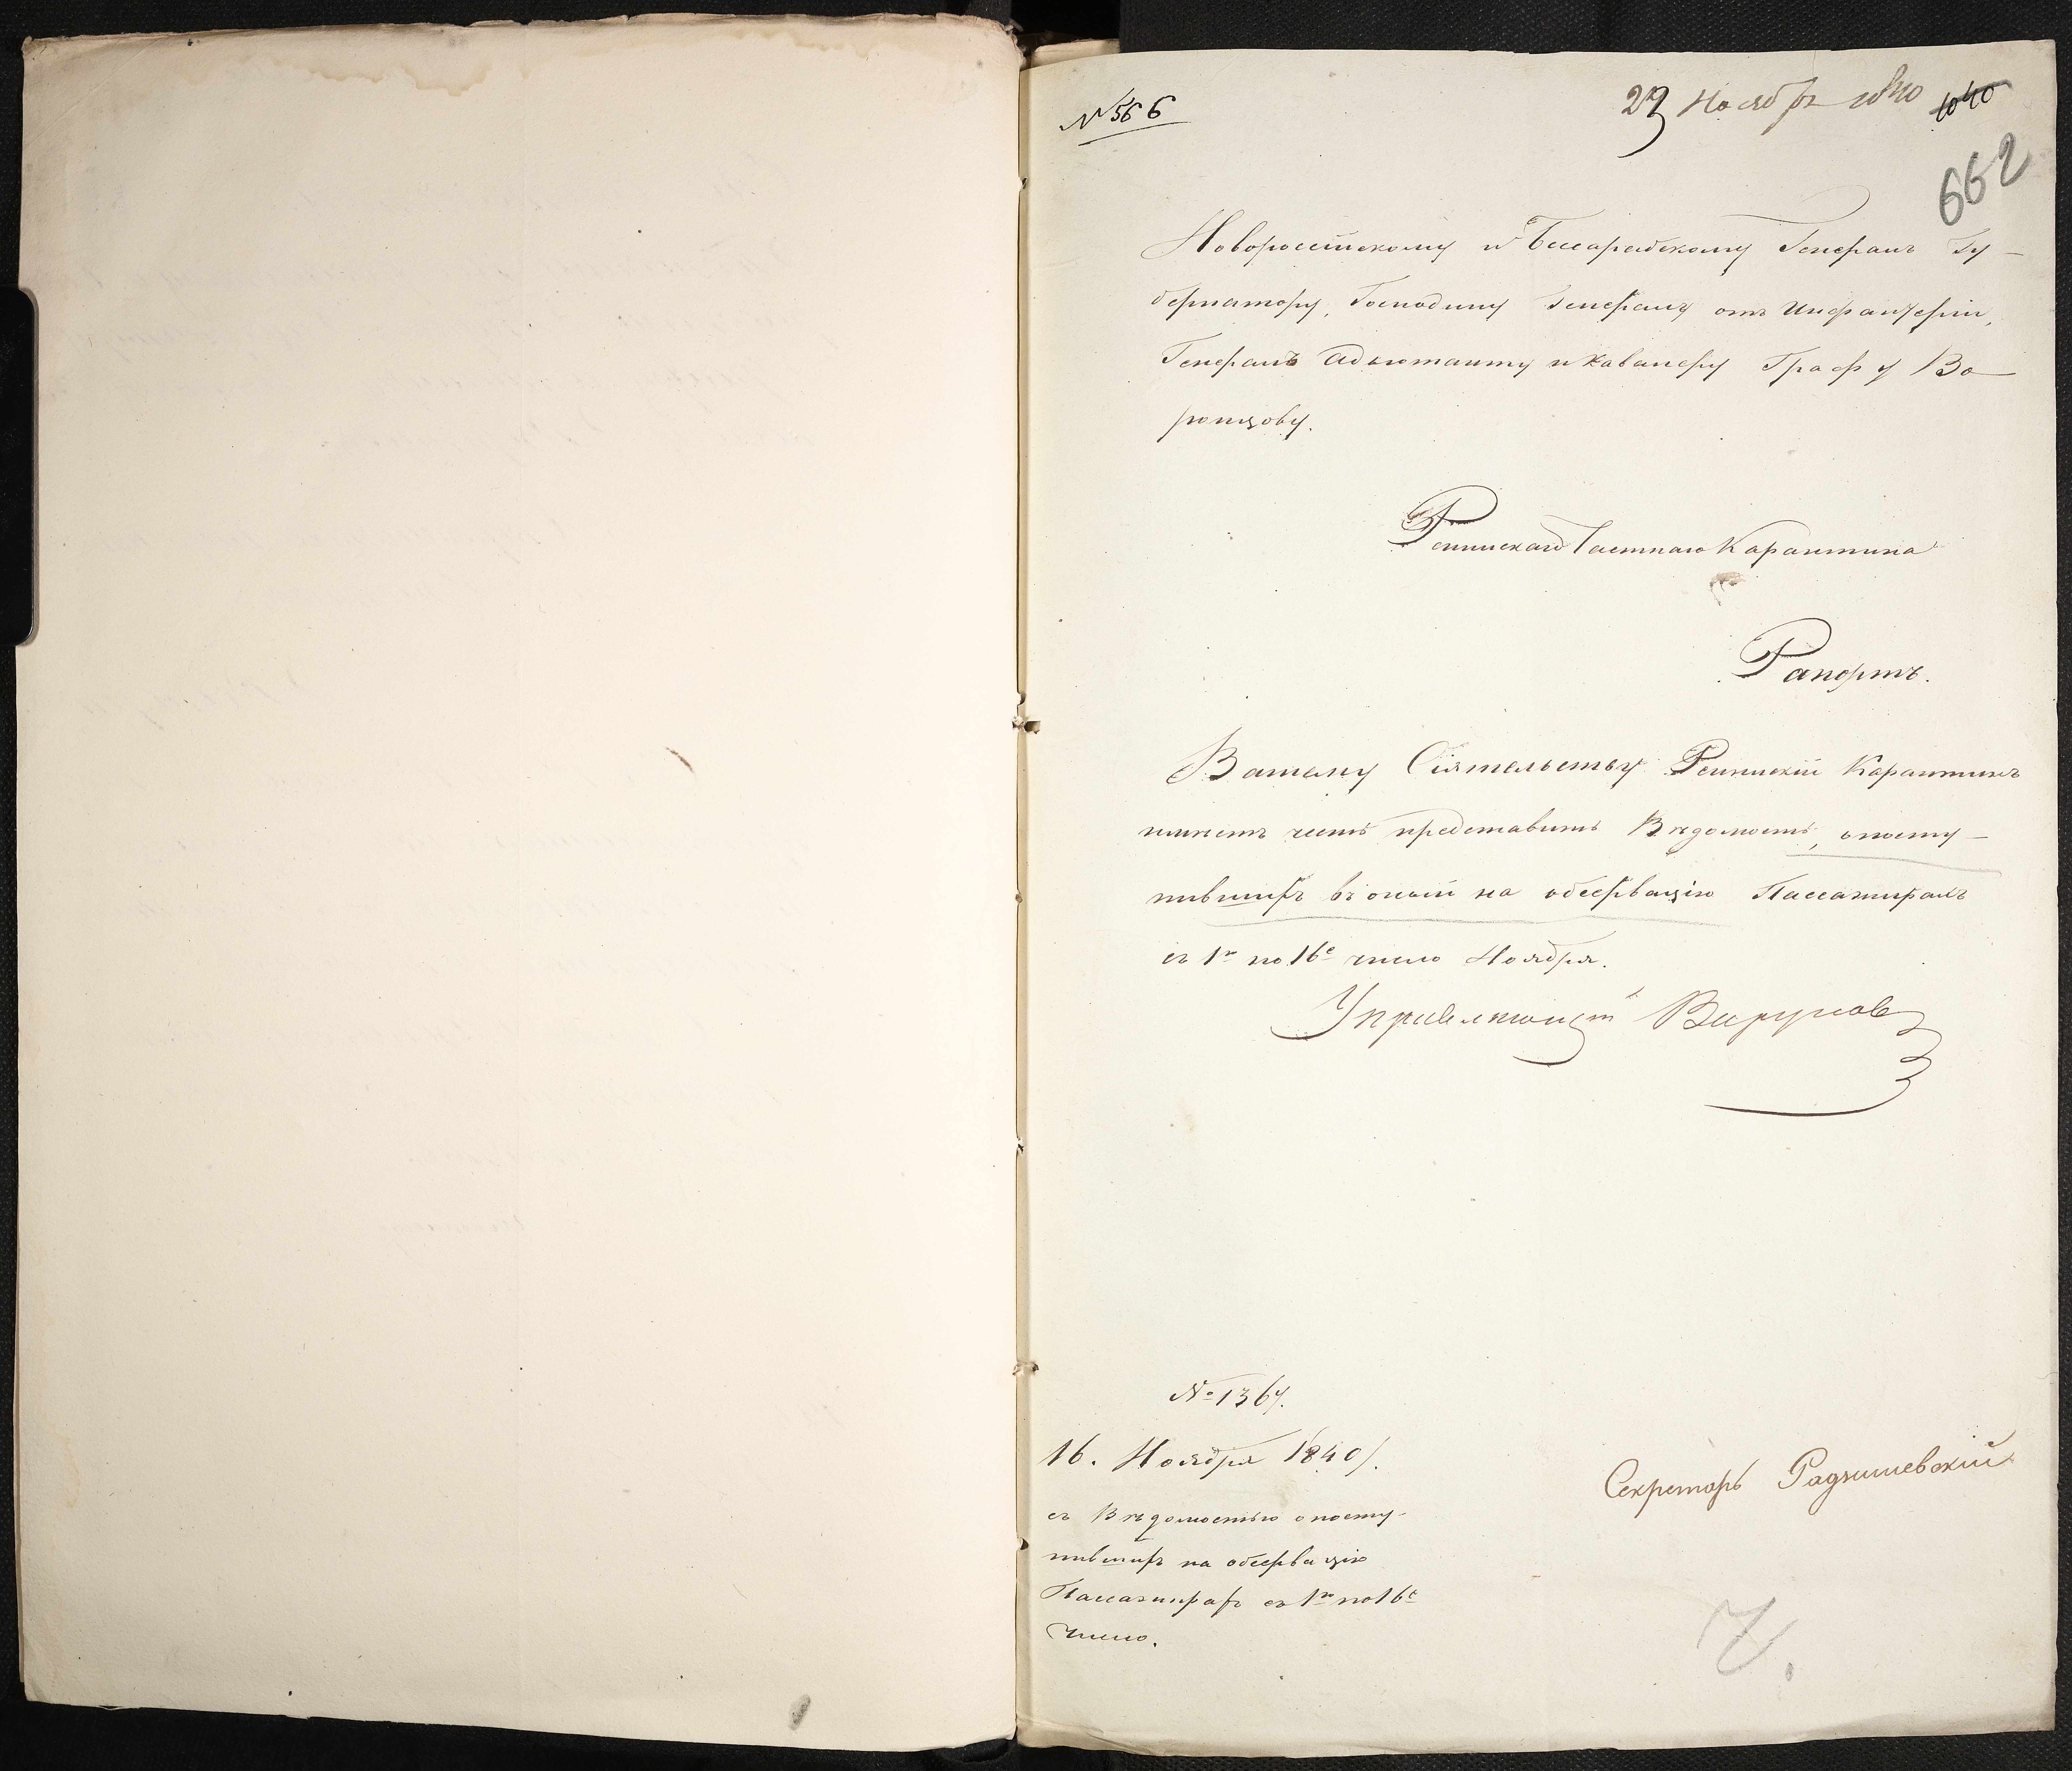 № 566
29 Ноябр 1840
1040
662
Новороссійскому и Бессарабскому Генералъ Гу-
бернатору, Господину Генералу отъ Инфантеріи,
Генералъ Адъютанту и Кавалеру Графу Во-
ронцову.
Ренискаго Частнаго Карантина
Рапортъ.
Вашему Сіятельству Ренискій Карантинъ
имѣетъ честь представить Вѣдомость, о посту-
пившихъ въ оный на обсервацію Пассажирахъ
съ 1го по 16е число Ноября.
Управляющій
№ 1364.
16. Ноября 1840 г.
съ Вѣдомостью о посту-
пившихъ на обсервацію
Пассажирахъ съ 1го по 16е
число.
Секретарь Радзишевскій